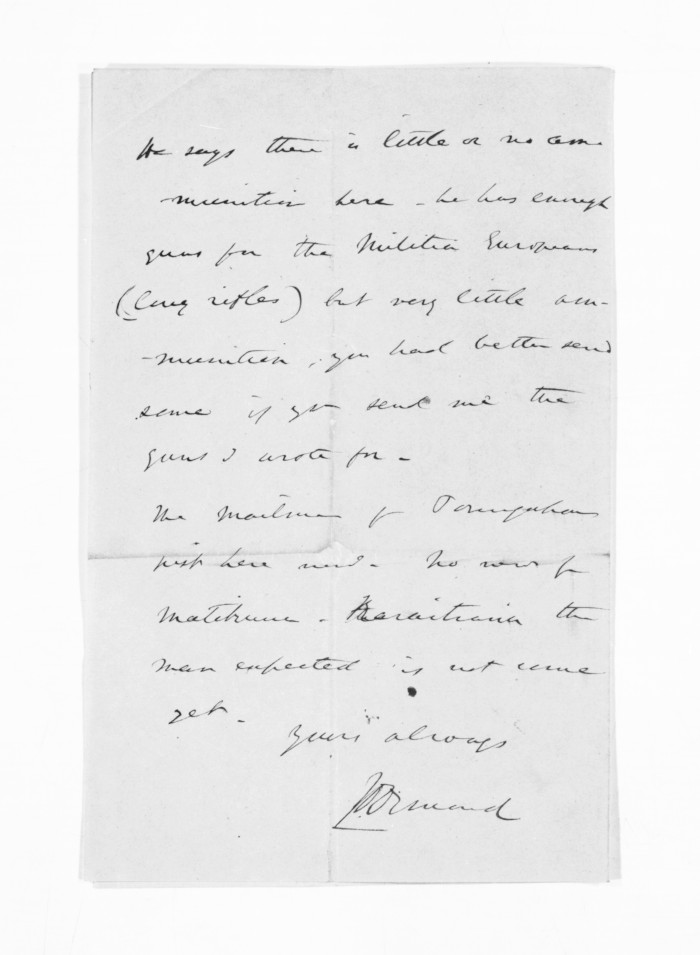 He says there is little or no am
-munition here - he has enough
guns for the Militia Europeans
(long rifles) but very little am-
-munition, you had better send
some if you send me the
guns I wrote for -
The Mailman fr
just here - No news fr
- the
man expected is not come
yet -
Yours always
JDOrmond